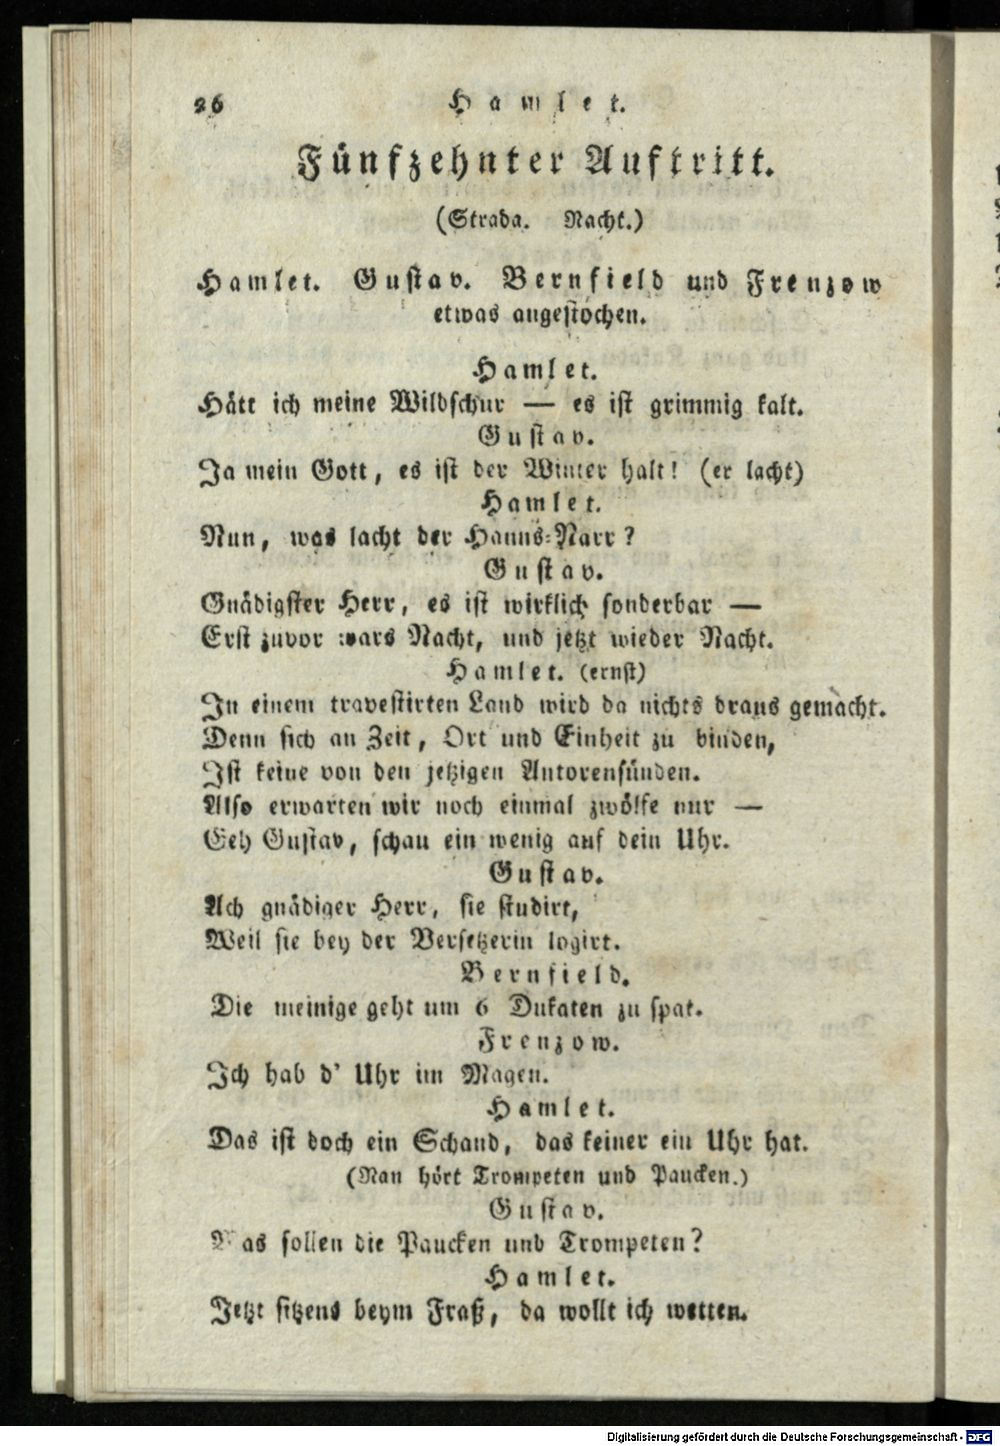 26 Hamlet.
Fünfzehnter Auftritt.
(Strada. Nacht.)
Hamlet. Gustav. Bernfield und Frenzow
etwas angestochen.
Hamlet.
Hått ich meine Wildschur — es ist grimmig kalt.
Gustav.
Ja mein Gott, es ist der Winter halt! (er lacht)
Hamlet.
Nun, was lacht der Hanns-Narr?
Gustav.
Gnådigster Herr, es ist wirklich sonderbar —
Erst zuvor wars Nacht, und jetzt wieder Nacht.
Hamlet. (ernst)
In einem travestirten Land wird da nichts draus gemacht.
Denn sich an Zeit, Ort und Einheit zu binden,
Ist keine von den jetzigen Autorensünden.
Also erwarten wir noch einmal zwölfe nur —
Geh Gustav, schau ein wenig auf dein Uhr.
Gustav.
Ach gnådiger Herr, sie studirt,
Weil sie bey der Versetzerin logirt.
Bernfield.
Die meinige geht um 6 Dukaten zu spat.
Frenzow.
Ich hab d' Uhr im Magen.
Hamlet.
Das ist doch ein Schand, das keiner ein Uhr hat.
(Man hört Trompeten und Paucken.)
Gustav.
Was sollen die Paucken und Trompeten?
Hamlet.
Jetzt sitzens beym Fraß, da wollt ich wetten.
Digitalisierung gefördert durch die Deutsche Forschungsgemeinschaft - DFG